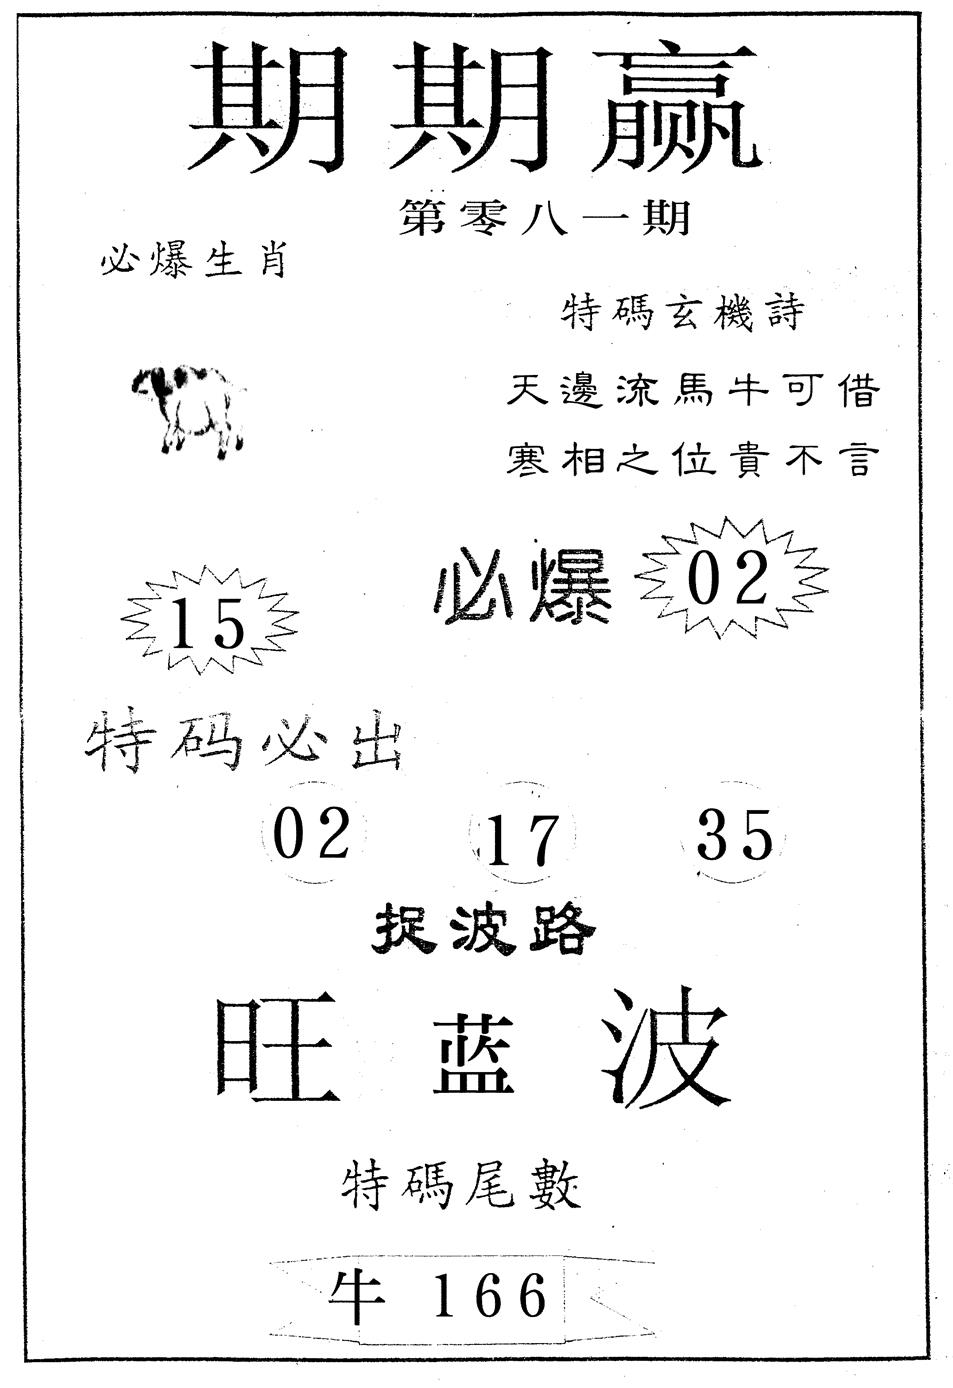 期期赢
第零八一期
必爆生肖
特碼玄機詩
天邊流馬牛可借
寒相之位貴不言
必爆 02
15
特码必出
02 17 35
捉波路
旺蓝波
特碼尾數
牛 166